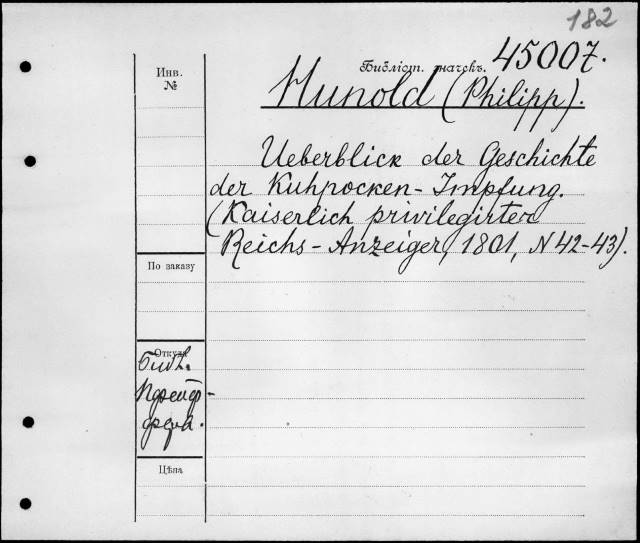 182
Инв.
№
Библіот. значекъ. 45007.
Hunold (Philipp).
Ueberblick der Geschichte
der Kuhpocken-Impfung.
(Kaiserlich privilegirter
Reichs-Anzeiger, 1801, N 42-43).
По заказу
Откуда
Библ.
Цѣна